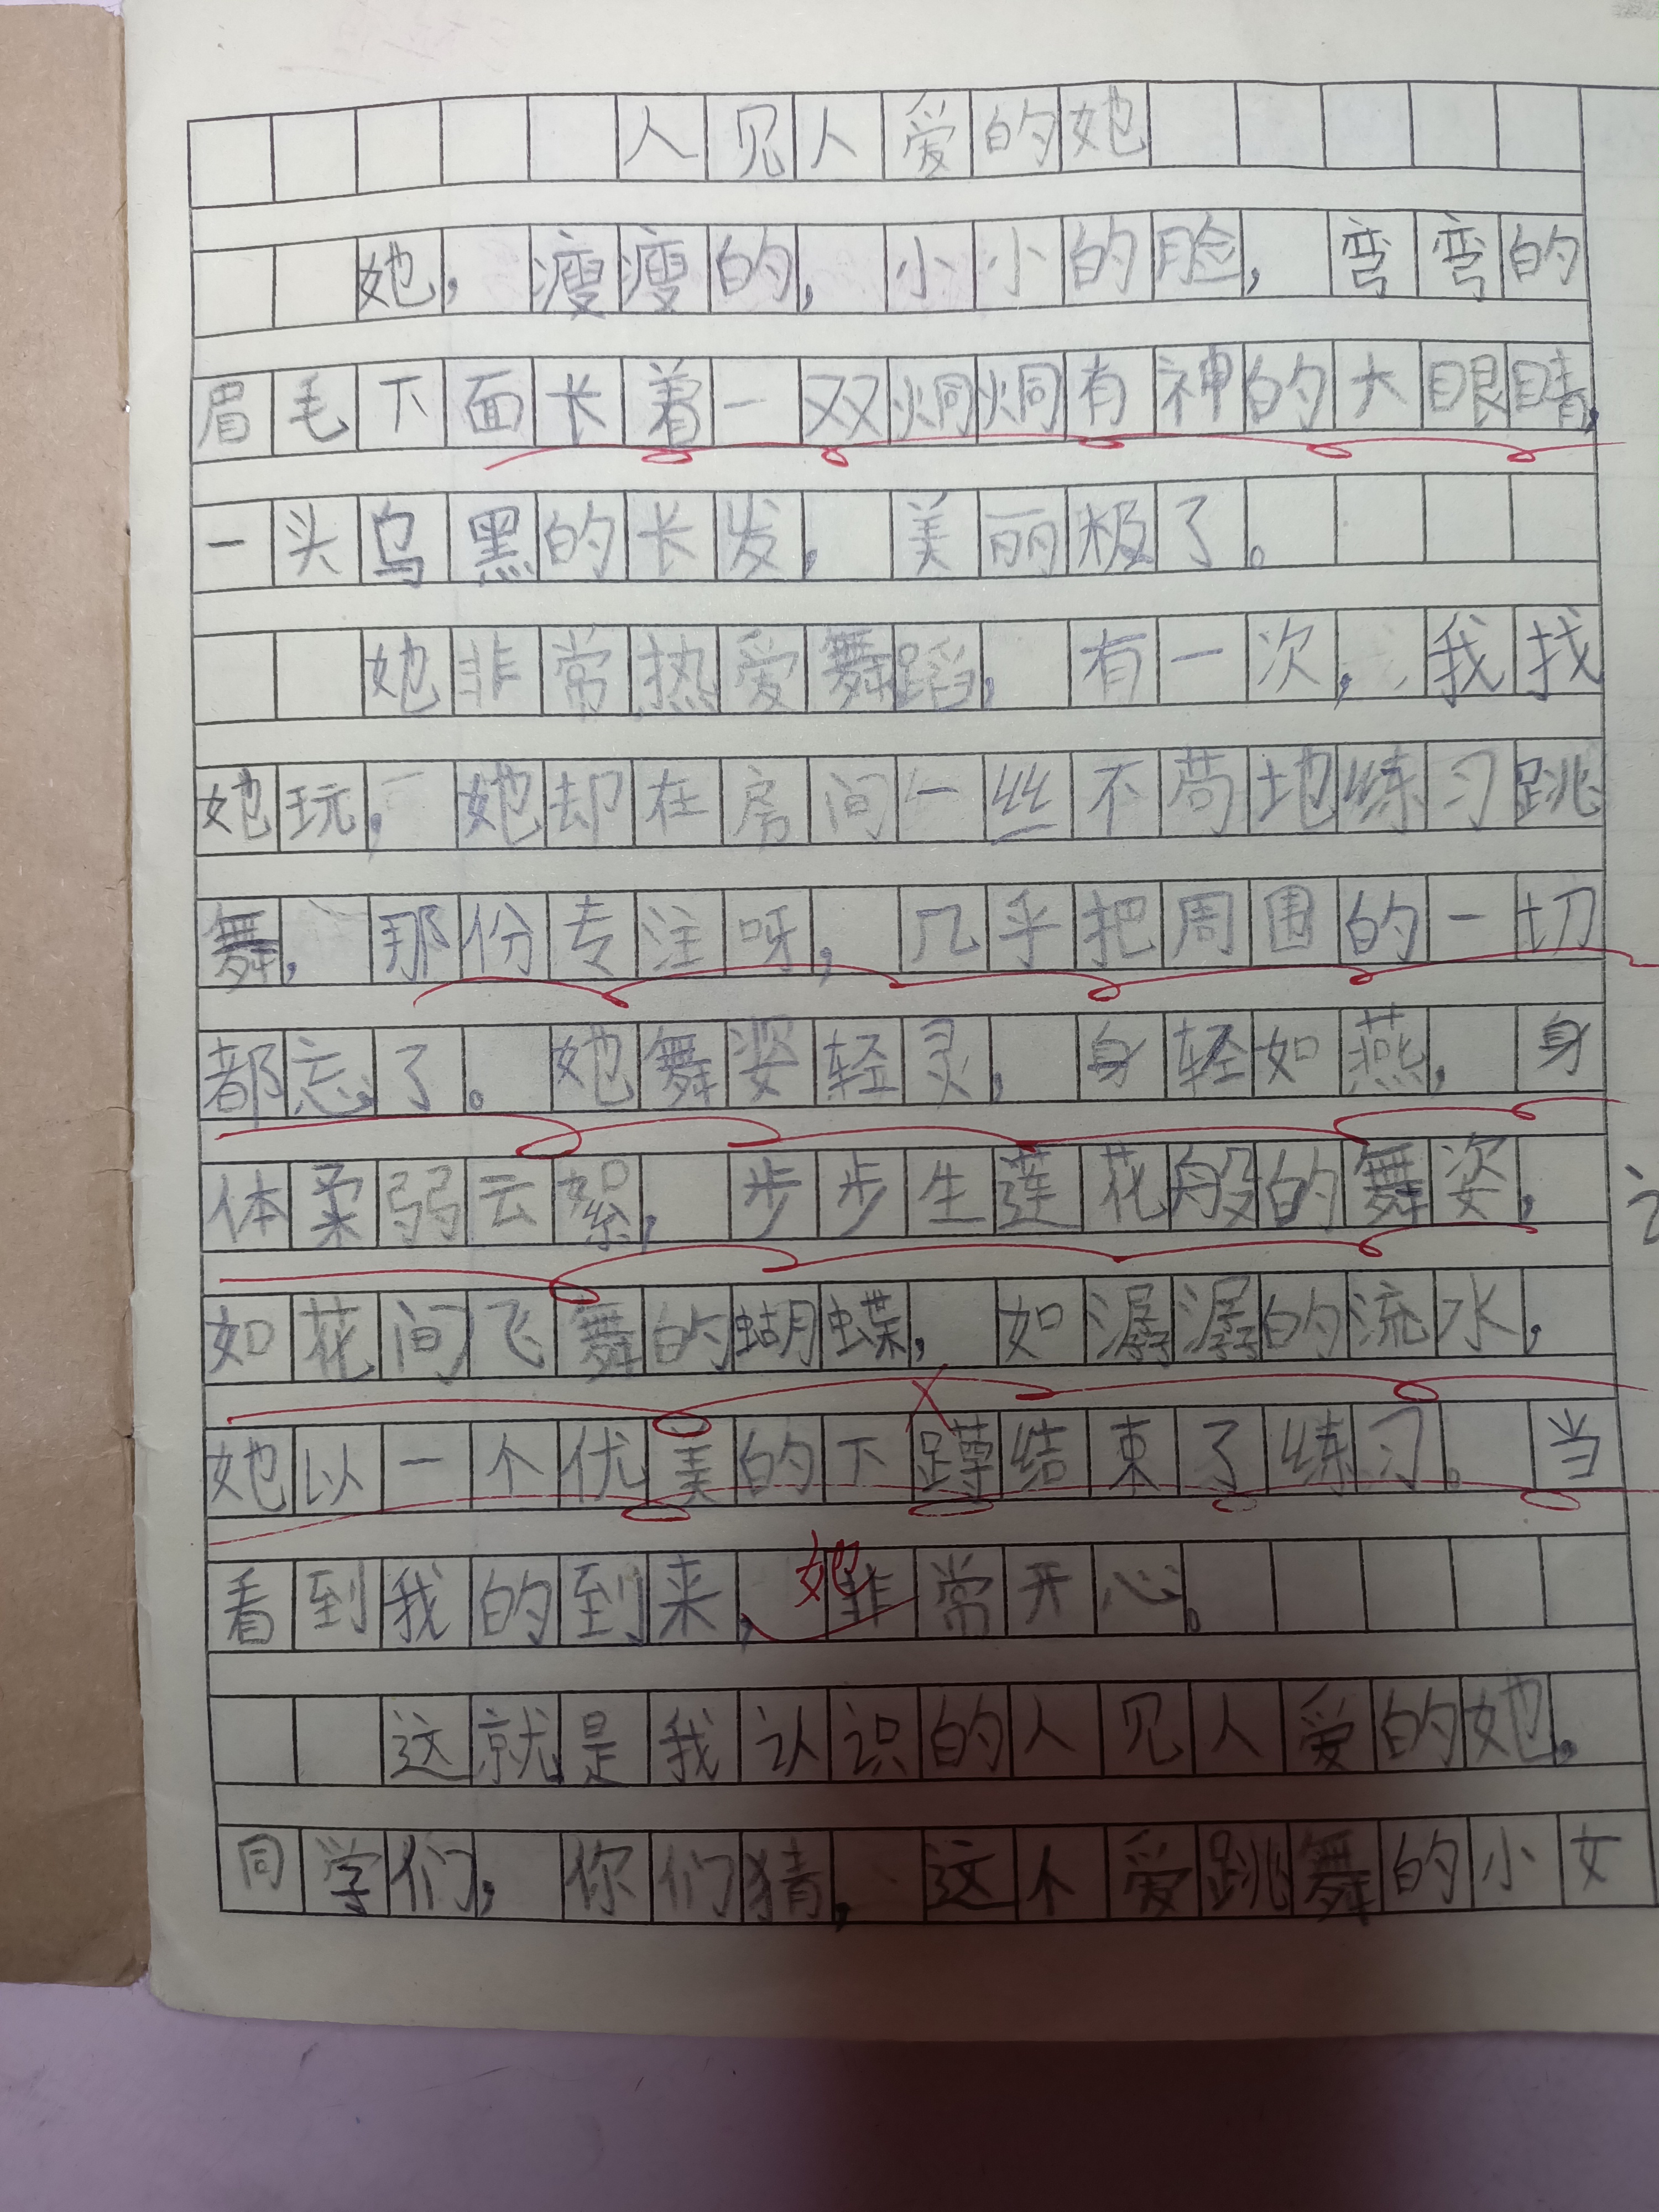 人见人爱的她
她，瘦瘦的，小小的脸，弯弯的
眉毛下面长着一双炯炯有神的大眼睛，
一头乌黑的长发，美丽极了。
她非常热爱舞蹈，有一次，我找
她玩，她却在房间一丝不苟地练习跳
舞，那份专注呀，几乎把周围的一切
都忘了。她舞姿轻灵，身轻如燕，身
体柔弱云絮，步步生莲花般的舞姿，
如花间飞舞的蝴蝶，如潺潺的流水，
她以一个优美的下蹲结束了练习。当
她
看到我的到来，非常开心。
这就是我认识的人见人爱的她。
同学们，你们猜，这个爱跳舞的小女